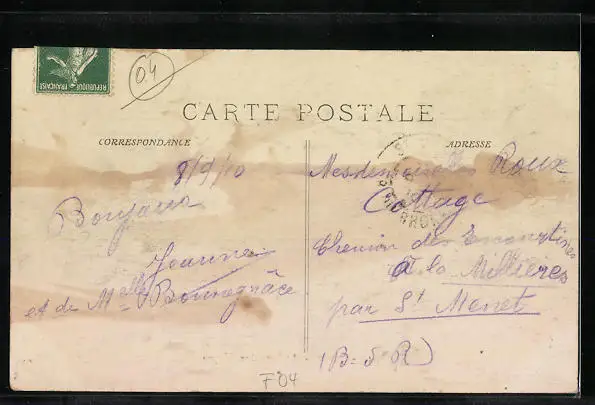 04
REPUBLIQUE FRANÇAISE
CARTE POSTALE
CORRESPONDANCE
ADRESSE
8/9/10
Bonjour
Jeanne
et de Melle Bonnegrâce
Mesdemoiselles Roux
Cottage
Chemin des Escourtines
à la Millières
par St Menet
(B-d R)
F04